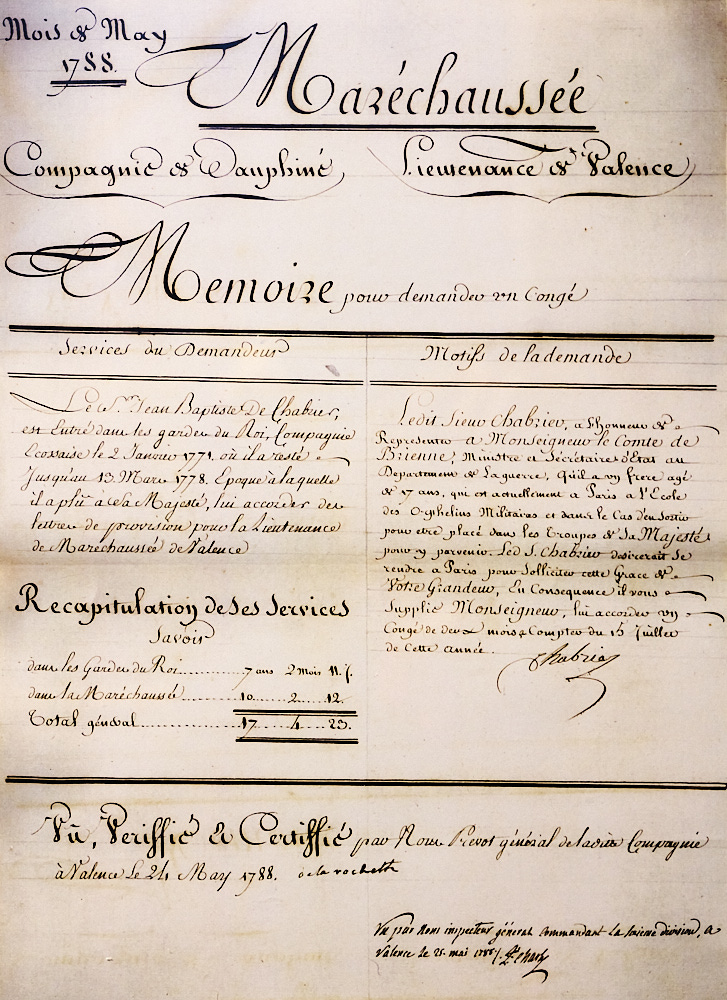 Mois de May
1788.
Maréchaussée
Compagnie de Dauphiné, Lieutenance de Valence
Memoire pour demander un Congé
Services du Demandeur
Le Sr. Jean Baptiste De Chabrier,
est Entré dans les gardes du Roi, Compagnie
Ecossaise le 2 Janvier 1771, où il a resté
Jusqu'au 13 Mars 1778. Epoque à laquelle
il a plû à Sa Majesté, lui accorder des
lettres de provision pour la Lieutenance
de Maréchaussée de Valence
Recapitulation de Ses Services
Savoir
dans les Gardes du Roi 7 ans 2 Mois 11. j.
dans la Maréchaussée 10 2 12.
Total général 17 4 23.
Motifs de la demande
Ledit Sieur Chabrier, a l'honneur de
Representer a Monseigneur le Comte de
Brienne, Ministre et Sécrétaire d'Etat au
Departement de La guerre, Qu'il a un frere agé
de 17 ans, qui est actuellement a Paris a l'Ecole
des Orphelins Militaires et dans le Cas d'en Sortir
pour etre placé dans les Troupes de Sa Majesté
pour y parvenir. Led. S. Chabrier desirerait Se
rendre a Paris pour Solliciter cette Grace de
Votre Grandeur, En Consequence il vous
Supplie Monseigneur, lui accorder un
Congé de deux mois a Compter du 15 Juillet
de Cette année.
Chabrier
Vû, Veriffié & Certiffié par Nous Prevot général de ladite Compagnie
à Valence Le 24 May 1788. de la rochette
Vu par nous inspecteur général commandant la sixieme division, a
Valence le 25. mai 1788